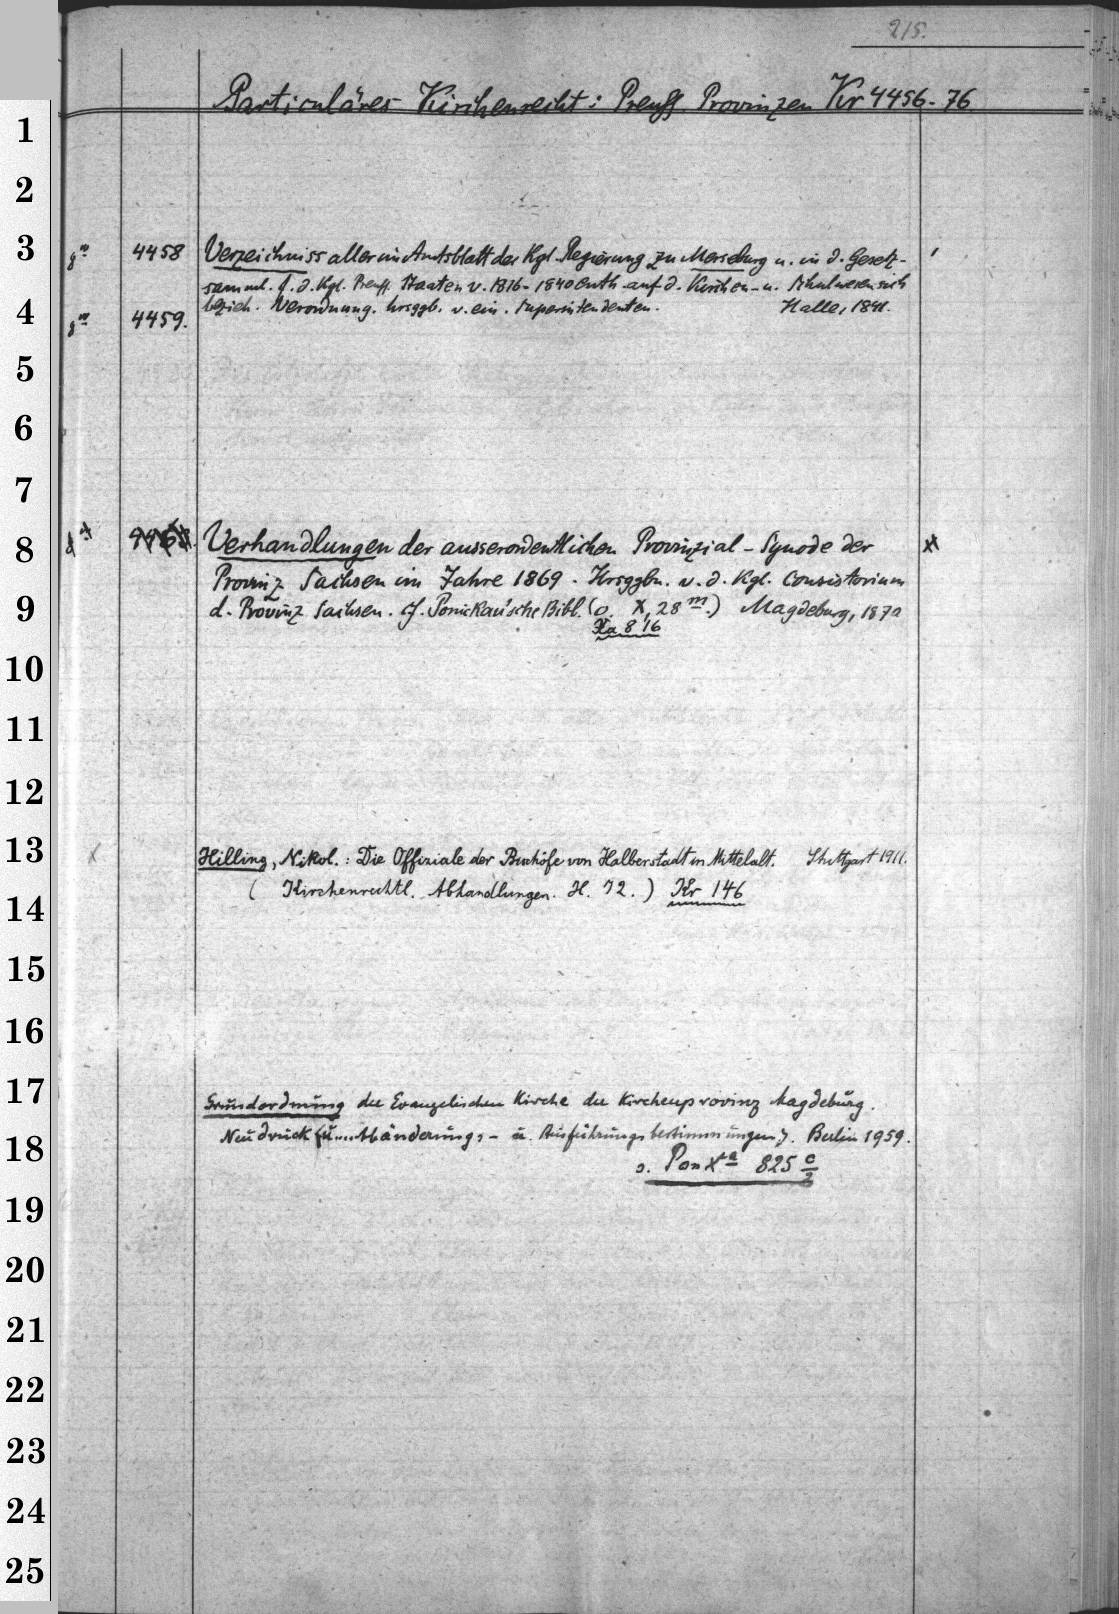 215.
Particuläres Kirchenrecht: Preuß. Provinzen Kr 4456-76
1
2
3
8º 4458 Verzeichniss aller im Amtsblatt der Kgl. Regierung zu Merseburg u. in d. Gesetz-
samml. f. d. Kgl. Preuß. Staaten v. 1816-1840 enth. auf d. Kirchen- u. Schulwesen sich
4
8º 4459. bezieh. Verordnung. hrsggb. v. ein. Superintendenten. Halle, 1841.
5
6
7
8
4º 4460. Verhandlungen der ausserordentlichen Provinzial-Synode der
Provinz Sachsen im Jahre 1869. Hrsggbn. v. d. Kgl. Consistorium
9
d. Provinz Sachsen. cf. Ponickau'sche Bibl. (o. X, 28 m.) Magdeburg, 1870
Xa 816
10
11
12
13
Hilling, Nikol.: Die Offiziale der Bischöfe von Halberstadt im Mittelalt. Stuttgart 1911.
14
(Kirchenrechtl. Abhandlungen. H. 72.) Kr 146
15
16
17
Grundordnung der Evangelischen Kirche der Kirchenprovinz Magdeburg.
18
Neudruck (u.... Abänderungs- u. Ausführungsbestimmungen). Berlin 1959.
s. Pon Xa 825 c/2
19
20
21
22
23
24
25